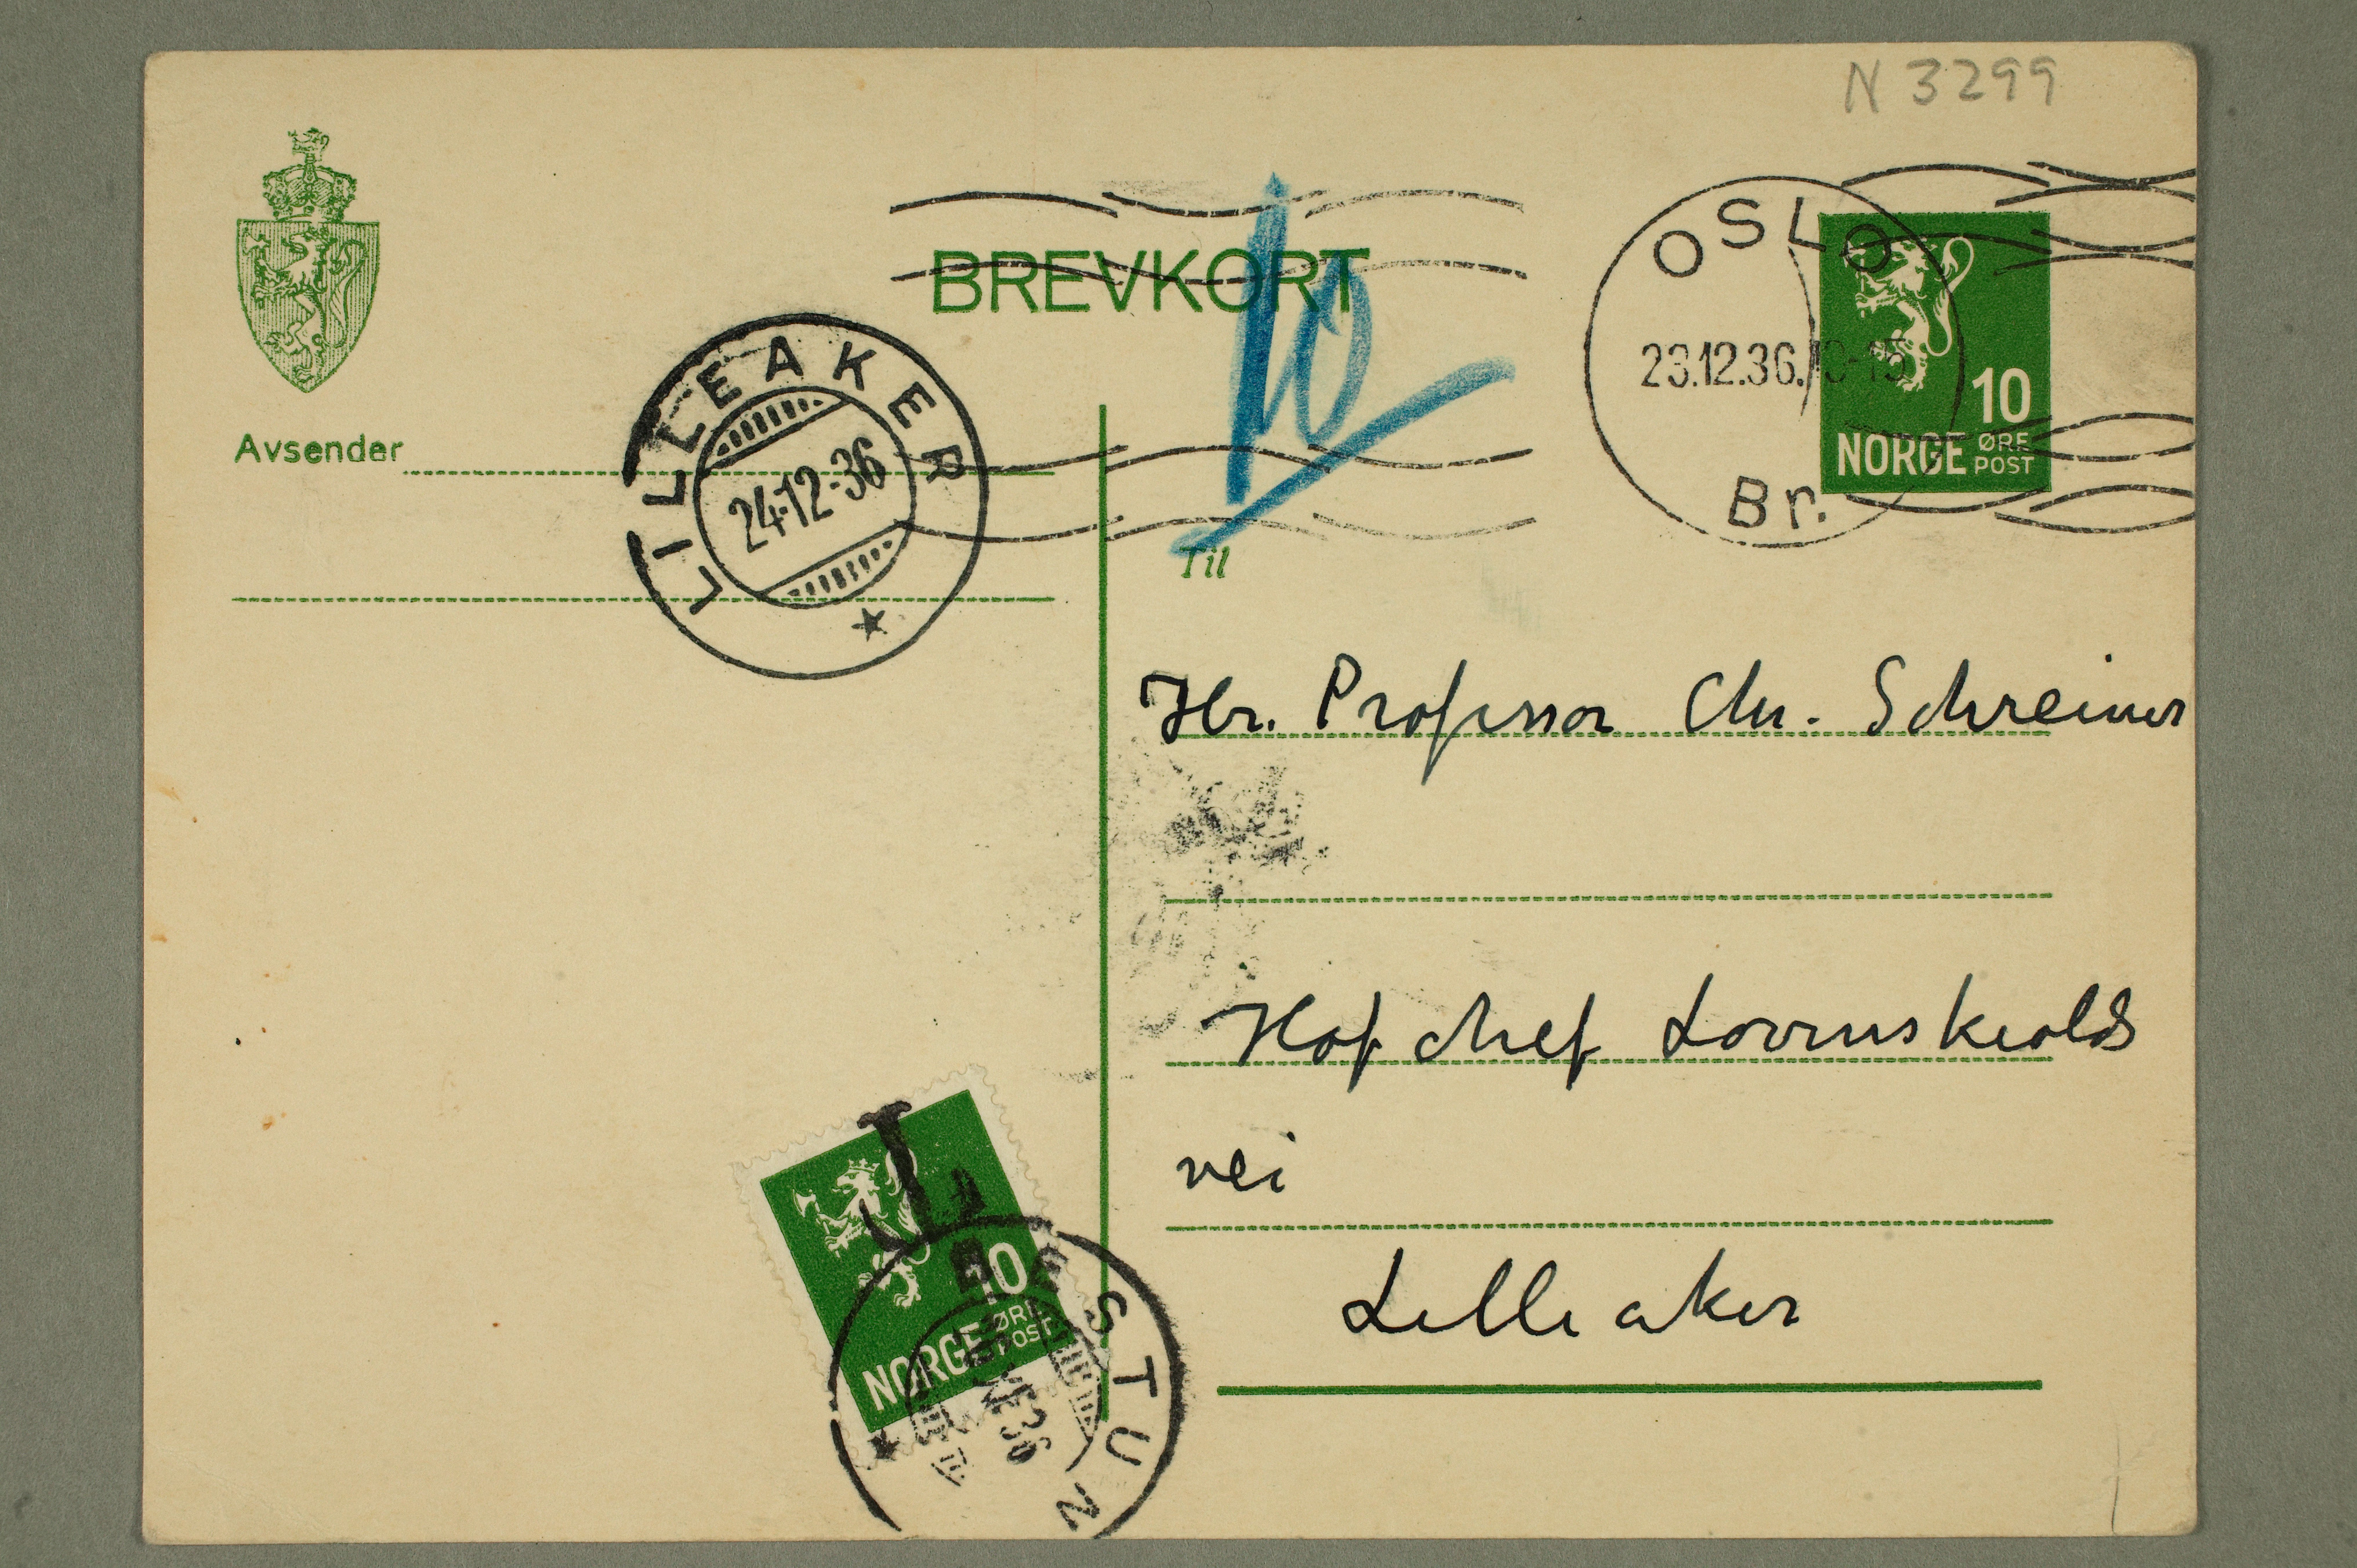 N 3299
BREVKORT
10
OSLO
23.12.36.
Br.
10
NORGE ØRE POST
LILLEAKER
24-12-36
Avsender
Til
Hr. Professor Chr. Schreiner
Hofchef Lovenskiolds
vei
Lilleaker
L
10
NORGE ØRE POST
BESTUN
36